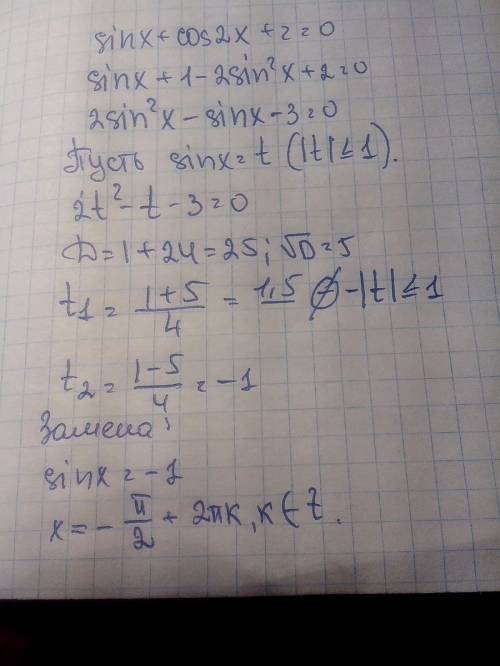 sinx + cos2x + 2 = 0
sinx + 1 - 2sin²x + 2 = 0
2sin²x - sinx - 3 = 0
Пусть sinx = t (|t| ≤ 1).
2t² - t - 3 = 0
D = 1 + 24 = 25; √D = 5
t₁ = (1+5)/4 = 1,5 ∅ - |t| ≤ 1
t₂ = (1-5)/4 = -1
Замена:
sinx = -1
x = -π/2 + 2πk, k ∈ Z.